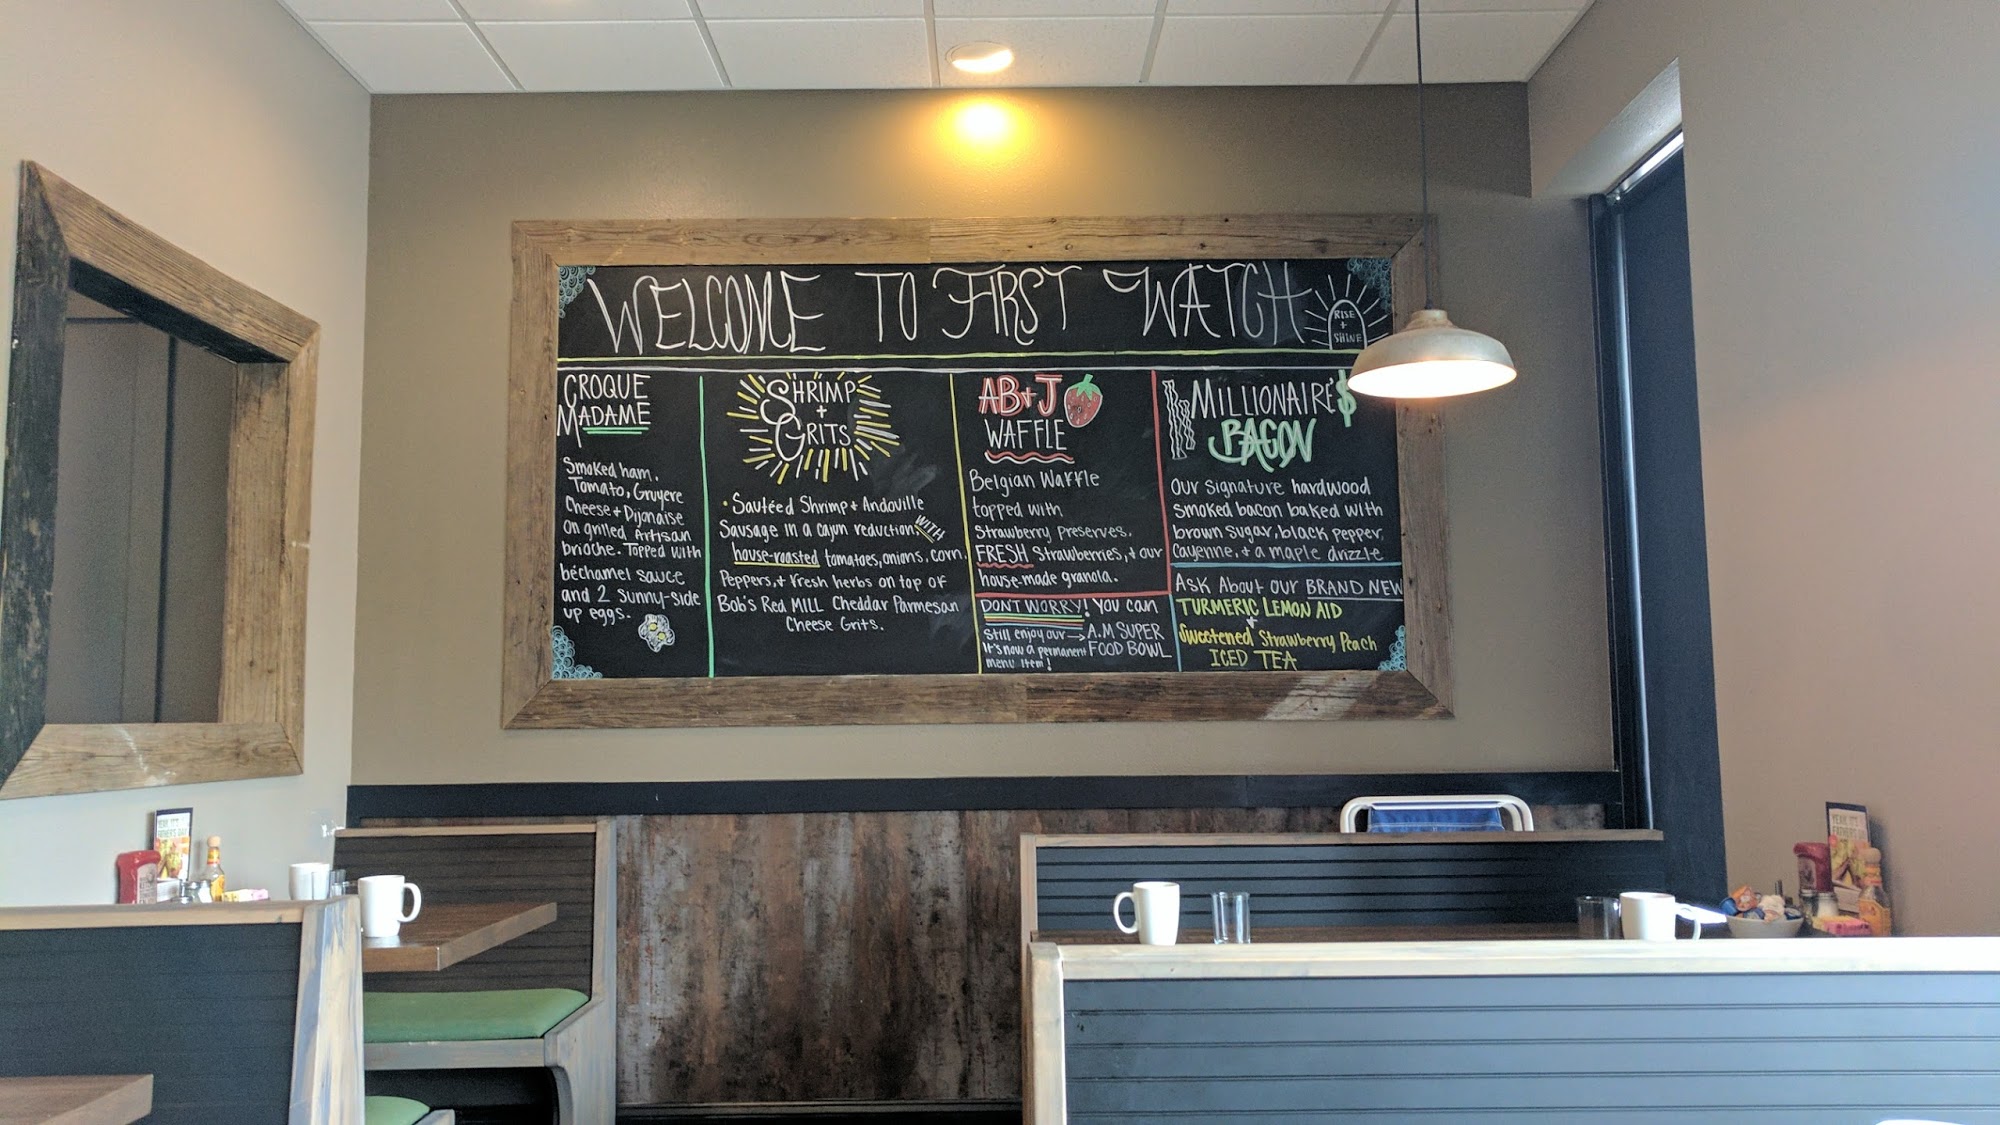 WELCOME TO FIRST WATCH
RISE
+
SHINE
CROQUE
MADAME
Smoked ham,
Tomato, Gruyere
Cheese + Dijonaise
on grilled Artisan
brioche. Topped with
béchamel sauce
and 2 sunny-side
up eggs.
SHRIMP
+
GRITS
• Sautéed Shrimp + Andouille
Sausage in a cajun reduction WITH
house-roasted tomatoes, onions, corn,
Peppers, + fresh herbs on top of
Bob's Red MILL Cheddar Parmesan
Cheese Grits.
AB+J
WAFFLE
Belgian Waffle
topped with
Strawberry preserves,
FRESH Strawberries, + our
house-made granola.
DON'T WORRY! You can
still enjoy our → A.M SUPER
It's now a permanent FOOD BOWL
menu item!
MILLIONAIRE$
BACON
Our signature hardwood
smoked bacon baked with
brown sugar, black pepper,
cayenne, + a maple drizzle
ASK About our BRAND NEW
TURMERIC LEMON AID
+
Sweetened Strawberry Peach
ICED TEA
YEAH, IT'S
FATHER'S DAY
YEAH, IT'S
FATHER'S DAY